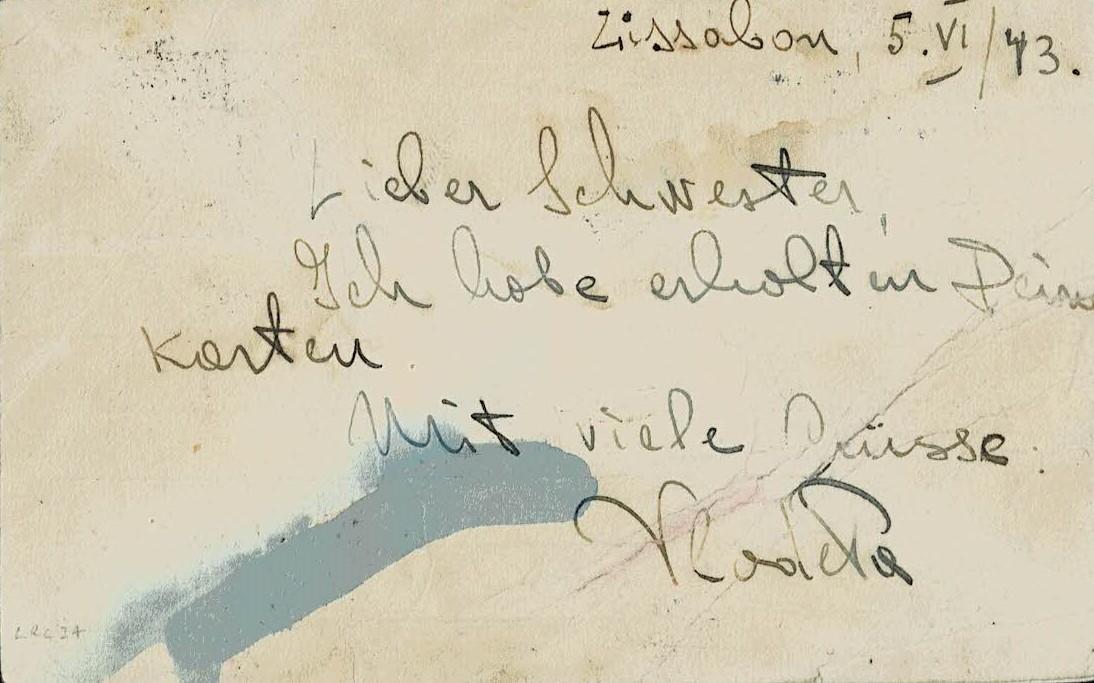 Lissabon, 5.VI/43.
Lieber Schwester,
Ich habe erhalten Deine
Karten
Mit viele Grüsse.